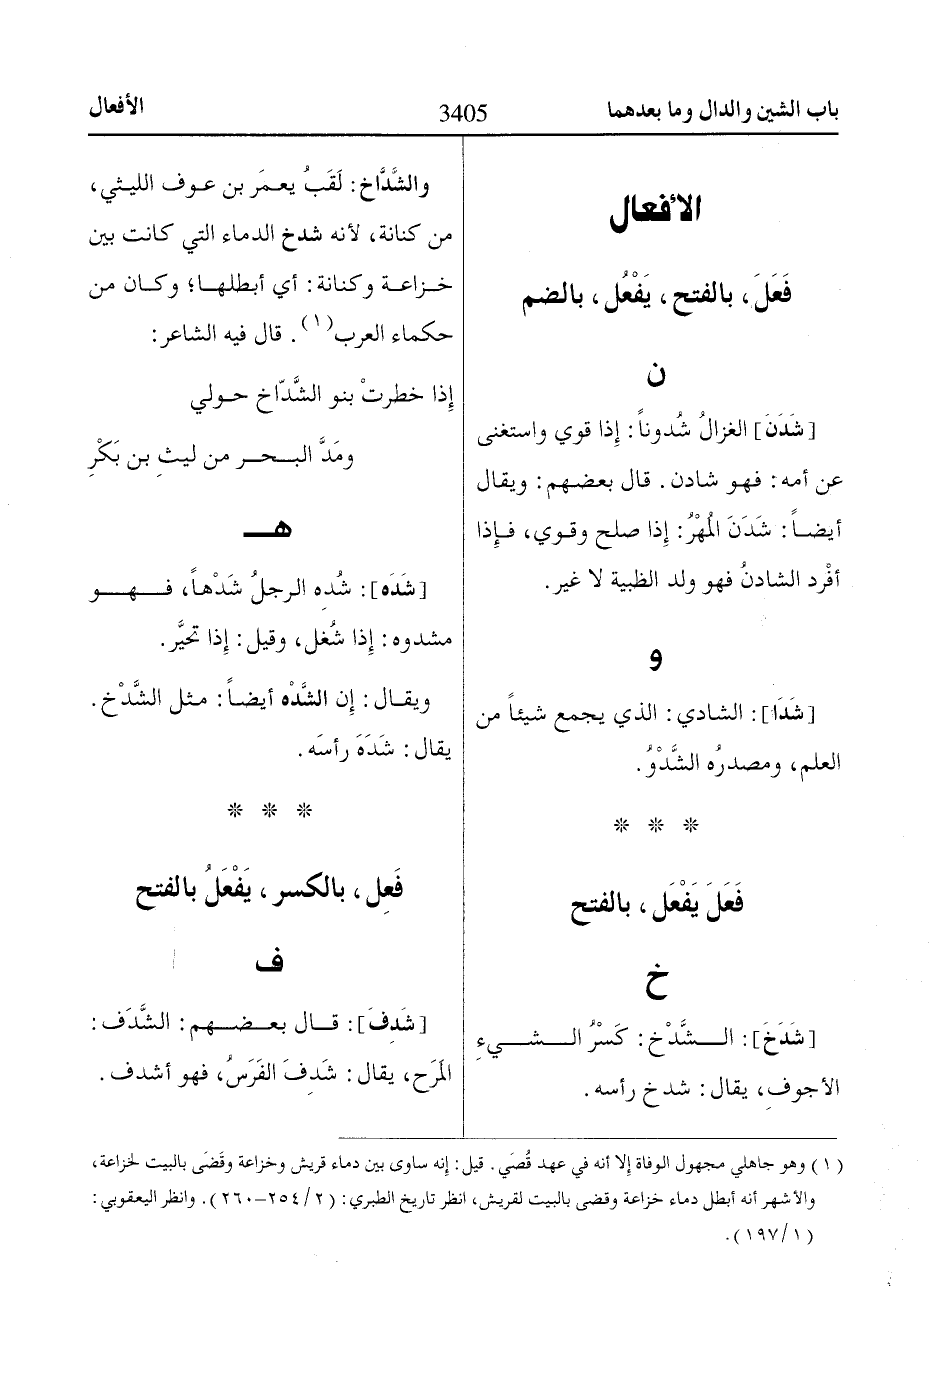 باب الشين والدال وما بعدهما
3405
الأفعال
الأفعال
فَعَلَ، بالفتح، يَفْعُل، بالضم
ن
[شَدَنَ] الغزالُ شُدوناً: إذا قوي واستغنى
عن أمه: فهو شادن. قال بعضهم: ويقال
أيضاً: شَدَنَ المُهْرُ: إذا صلح وقوي، فإذا
أفْرد الشادنُ فهو ولد الظبية لا غير.
و
[شَدَا]: الشادي: الذي يجمع شيئاً من
العلم، ومصدرُه الشَّدْوُ.
* * *
فَعَلَ يَفْعَل، بالفتح
خ
[شَدَخَ]: الشَّدْخ: كَسْرُ الشيءِ
الأجوفِ، يقال: شدخ رأسه.
والشَّدَّاخ: لَقَبُ يعمَر بن عوف الليثي،
من كنانة، لأنه شدخ الدماء التي كانت بين
خزاعة وكنانة: أي أبطلها؛ وكان من
حكماء العرب(١). قال فيه الشاعر:
إذا خطرتْ بنو الشَّدّاخ حولي
ومَدَّ البحر من ليثِ بن بَكْرِ
هـ
[شَدَه]: شُدِه الرجلُ شَدْهاً، فهو
مشدوه: إذا شُغل، وقيل: إذا تحيَّر.
ويقال: إن الشَّدْه أيضاً: مثل الشَّدْخ.
يقال: شَدَهَ رأسَه.
* * *
فَعِل، بالكسر، يَفْعَلُ بالفتح
ف
[شَدِفَ]: قال بعضهم: الشَّدَف:
المَرَح، يقال: شَدِفَ الفَرَسُ، فهو أشدف.
(١) وهو جاهلي مجهول الوفاة إلا أنه في عهد قُصَي. قيل: إنه ساوى بين دماء قريش وخزاعة وقَضَى بالبيت لخزاعة،
والأشهر أنه أبطل دماء خزاعة وقضى بالبيت لقريش، انظر تاريخ الطبري: (٢/ ٢٥٤-٢٦٠). وانظر اليعقوبي:
(١/ ١٩٧).